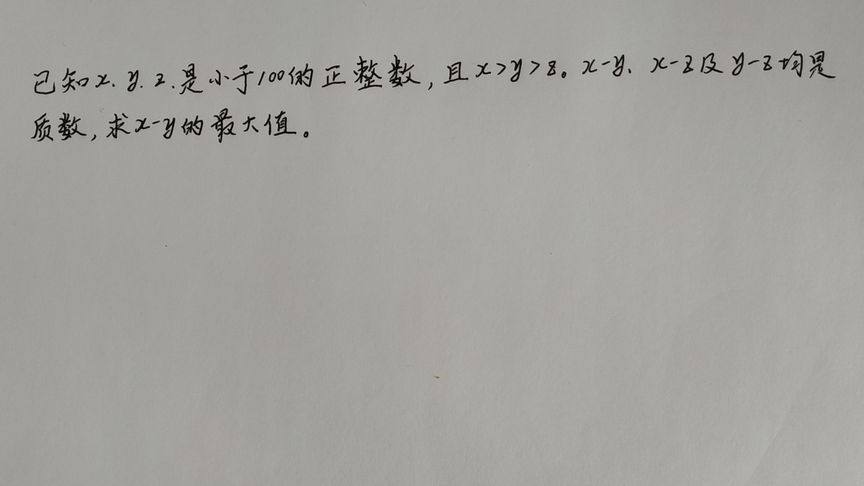 已知x、y、z、是小于100的正整数,且x>y>z。x-y、x-z及y-z均是
质数,求x-y的最大值。